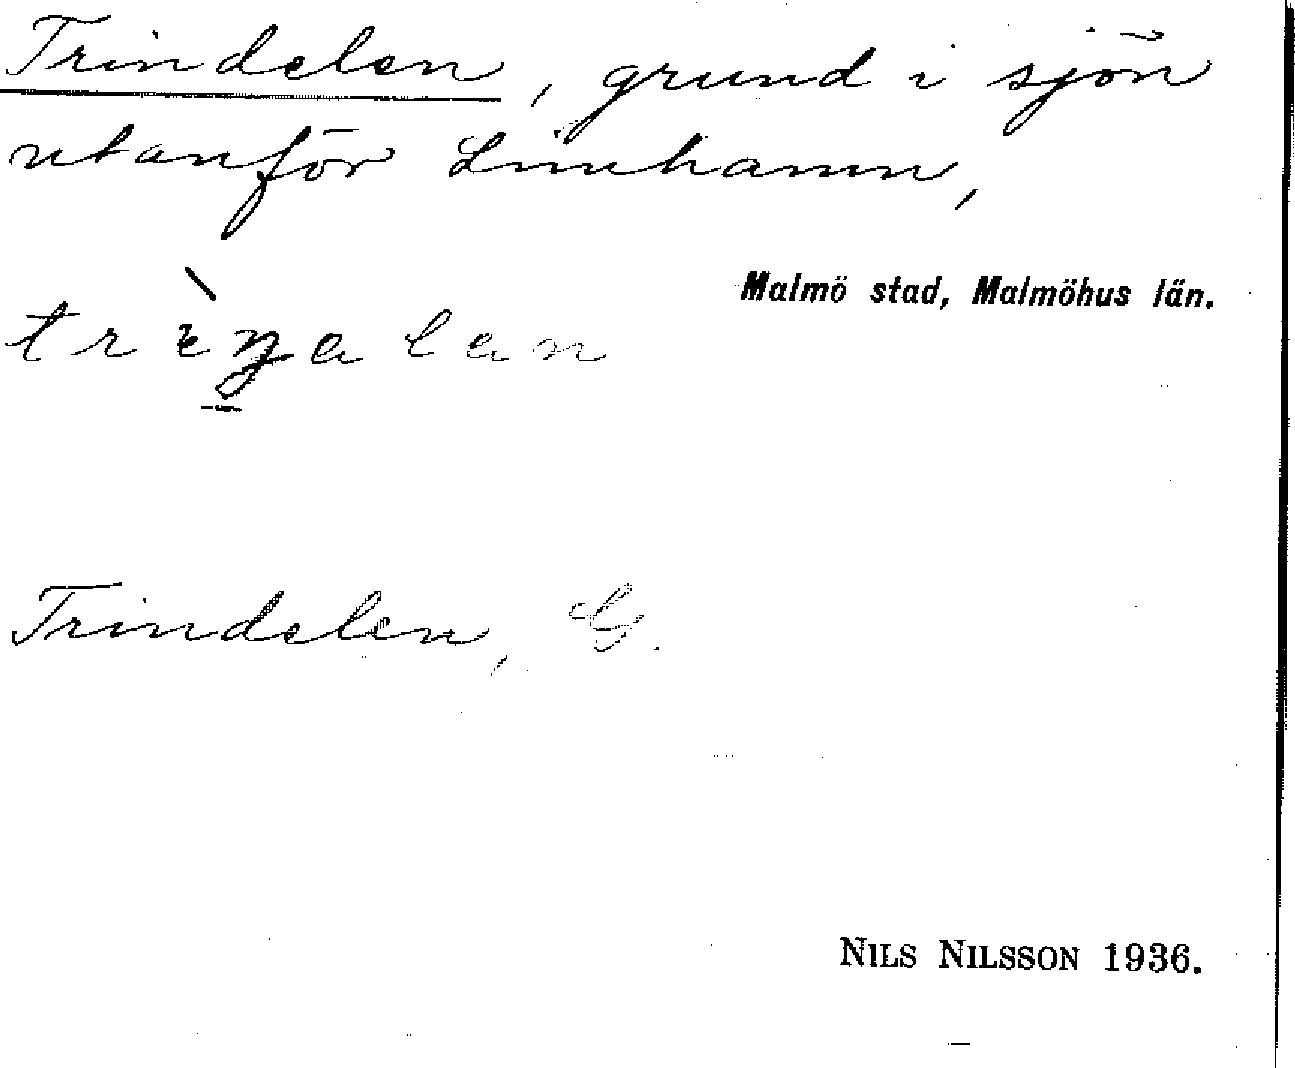 Trindelen, grund i sjön
utanför Limhamn,
Malmö stad, Malmöhus län.
Trindelen, G.
NILS NILSSON 1936.